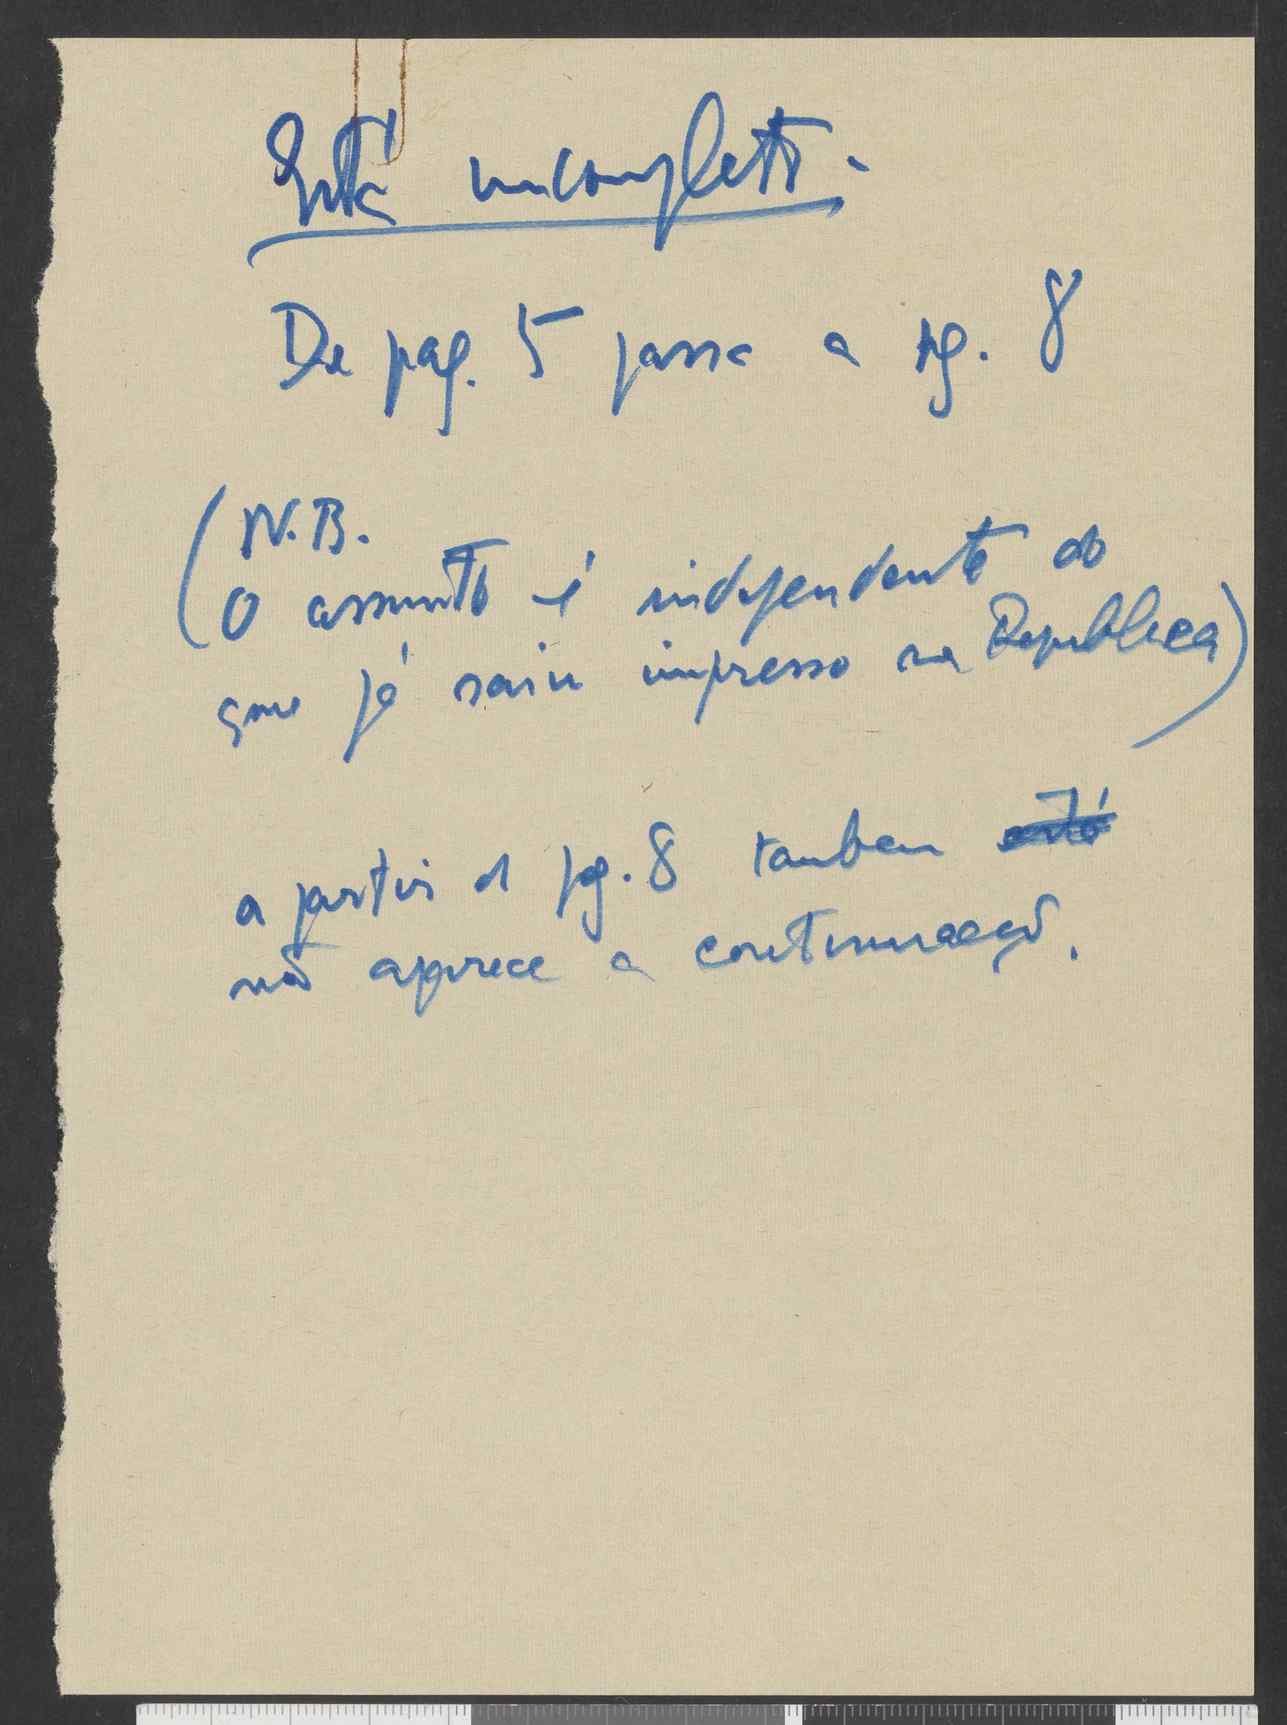 Está incompleto.
De pag. 5 passa a pg. 8
(N.B.
O assunto é independente do
que já saiu impresso na Republica)
a partir d pg. 8 tambem está
não aparece a continuação.